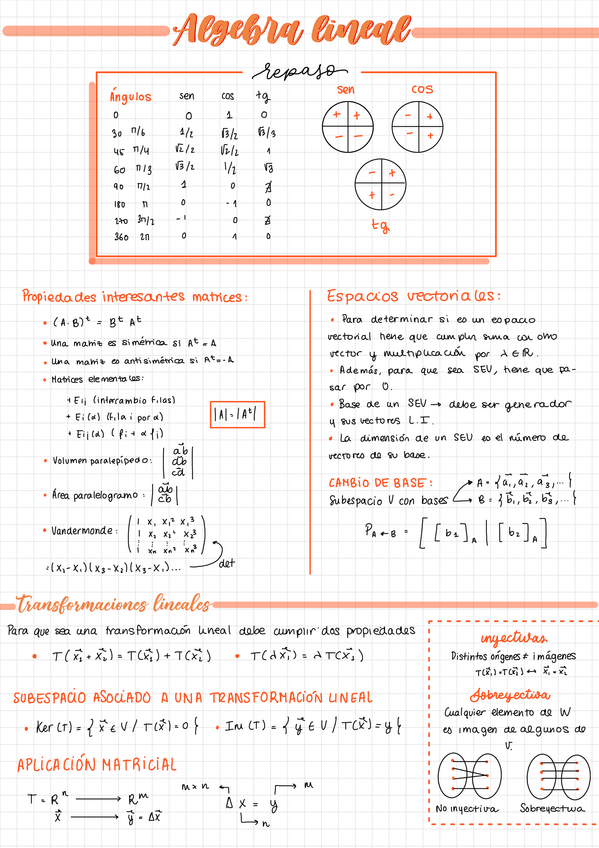 Algebra lineal
repaso
Ángulos sen cos tg
0 0 1 0
30 π/6 1/2 √3/2 √3/3
45 π/4 √2/2 √2/2 1
60 π/3 √3/2 1/2 √3
90 π/2 1 0 ∄
180 π 0 -1 0
270 3π/2 -1 0 ∄
360 2π 0 1 0
sen cos
+ + - +
- - - +
- +
+ -
tg
Propiedades interesantes matrices:
• (A·B)ᵗ = Bᵗ Aᵗ
• Una matriz es simétrica si Aᵗ = A
• Una matriz es antisimétrica si Aᵗ = -A
• Matrices elementales:
+ Eij (intercambio filas)
+ Ei(α) (fila i por α)
+ Eij(α) (fi + α fj)
|A| = |Aᵗ|
• Volumen paralepípedo:
• Área paralelogramo:
• Vandermonde:
1 x₁ x₁² x₁³
1 x₂ x₂² x₂³
1 xn xn² xn³
det
=(x₂-x₁)(x₃-x₂)(x₃-x₁)...
Espacios vectoriales:
• Para determinar si es un espacio
vectorial tiene que cumplir suma con otro
vector y multiplicación por λ ∈ ℝ.
• Además, para que sea SEV, tiene que pa-
sar por 0.
• Base de un SEV → debe ser generador
y sus vectores L.I.
• La dimensión de un SEV es el número de
vectores de su base.
CAMBIO DE BASE:
Subespacio V con bases
A = {a⃗₁, a⃗₂, a⃗₃,...}
B = {b⃗₁, b⃗₂, b⃗₃,...}
P A←B = [ [b₁]A | [b₂]A ]
Transformaciones lineales
Para que sea una transformación lineal debe cumplir dos propiedades
• T(x⃗₁ + x⃗₂) = T(x⃗₁) + T(x⃗₂) • T(λx⃗₁) = λT(x⃗₁)
SUBESPACIO ASOCIADO A UNA TRANSFORMACIÓN LINEAL
• Ker(T) = {x⃗ ∈ V / T(x⃗) = 0} • Im(T) = {y⃗ ∈ V / T(x⃗) = y}
APLICACIÓN MATRICIAL
T = Rⁿ → Rᵐ
x⃗ → y⃗ = Ax⃗
m x n m
A x = y
n
inyectivas
Distintos orígenes ≠ imágenes
T(x⃗₁) = T(x⃗₂) ↔ x⃗₁ = x⃗₂
Sobreyectiva
Cualquier elemento de W
es imagen de algunos de
V.
No inyectiva Sobreyectiva